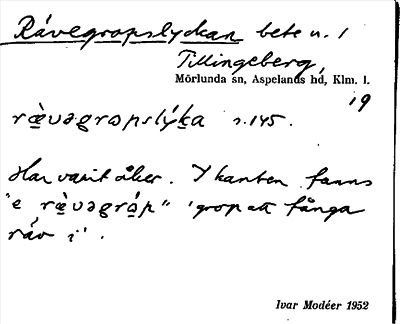 Rävegropslyckan bete n. 1
Tillingeberg,
Mörlunda sn, Aspelands hd, Klm. l.
19
ræ̀vəgrɑpslýka s. 145.
Har varit åker. I kanten fanns
"e rævəgráp" 'grop att fånga
räv i'.
Ivar Modéer 1952